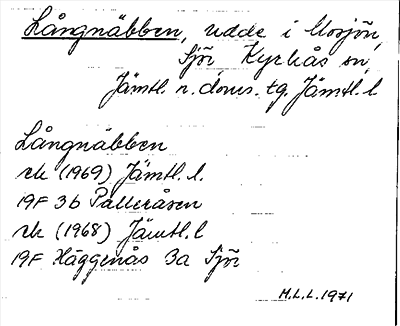 Långnäbben, udde i Mosjön,
Sjör, Kyrkås sn,
Jämtl. n. doms. tg. Jämtl. l
Långnäbben
rk (1969) Jämtl. l.
19F 3b Pålleråsen
rk (1968) Jämtl. l
19F Häggenås 3a Sjör
M.L.L. 1971